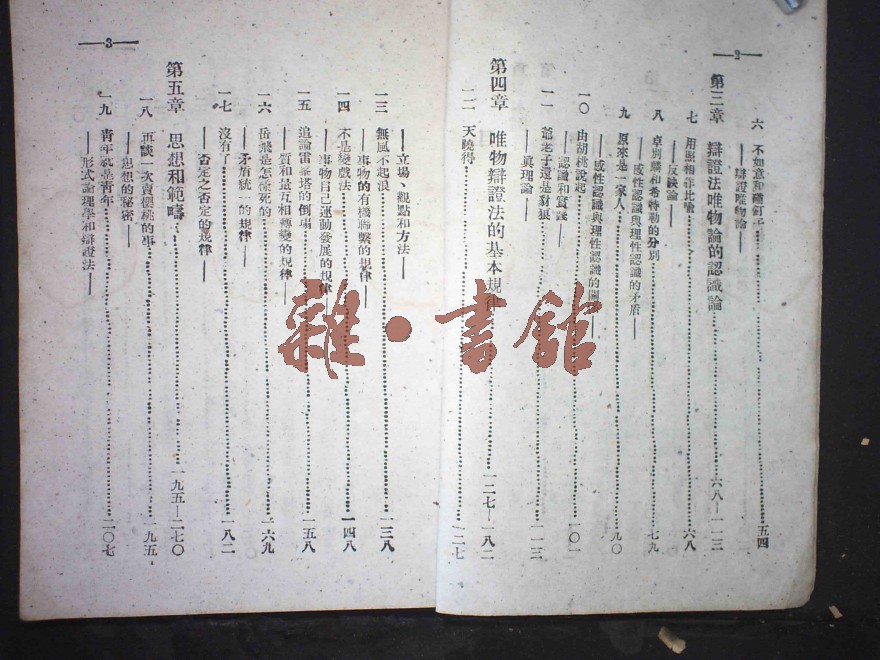 —2—
六 不如意和碰釘子……五四
——辯證唯物論——
第三章 辯證法唯物論的認識論……六八—一一三
七 用照相作比喻……六八
——反映論——
八 卓別麟和希特勒的分別……七九
——感性認識與理性認識的矛盾——
九 原來是一家人……九〇
——感性認識與理性認識的關
一〇 由胡桃說起……一〇一
——認識和實踐——
一一 爺老子還是豺狼……一一三
——眞理論——
第四章 唯物辯證法的基本規律……一二七—一八二
一二 天曉得……一二七
——立場、觀點和方法——
—3—
一三 無風不起浪……一三八
——事物的有機聯繫的規律——
一四 不是變戲法……一四八
——事物自己運動發展的規律
一五 追論雷峯塔的倒塌……一五八
——質和量互相轉變的規律——
一六 岳飛是怎樣死的……一六九
——矛盾統一的規律——
一七 沒有了……一八二
——否定之否定的規律——
第五章 思想和範疇……一九五—二七〇
一八 再談一次賣櫻桃的事……一九五
——思想的秘密——
一九 青年就是青年……二〇七
——形式論理學和辯證法——
雜·書館